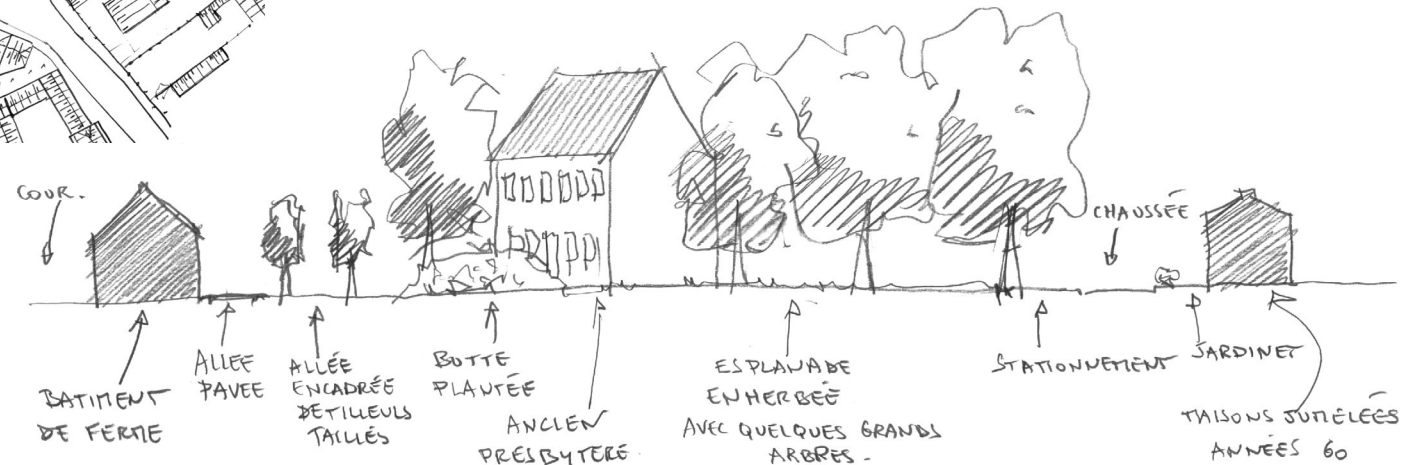 COUR.
BATIMENT
DE FERME
ALLEE
PAVEE
ALLÉE
ENCADRÉE
DE TILLEULS
TAILLÉS
BUTTE
PLANTÉE
ANCIEN
PRESBYTERE
ESPLANADE
ENHERBÉE
AVEC QUELQUES GRANDS
ARBRES.
STATIONNEMENT
CHAUSSÉE
JARDINET
MAISONS JUMELÉES
ANNÉES 60